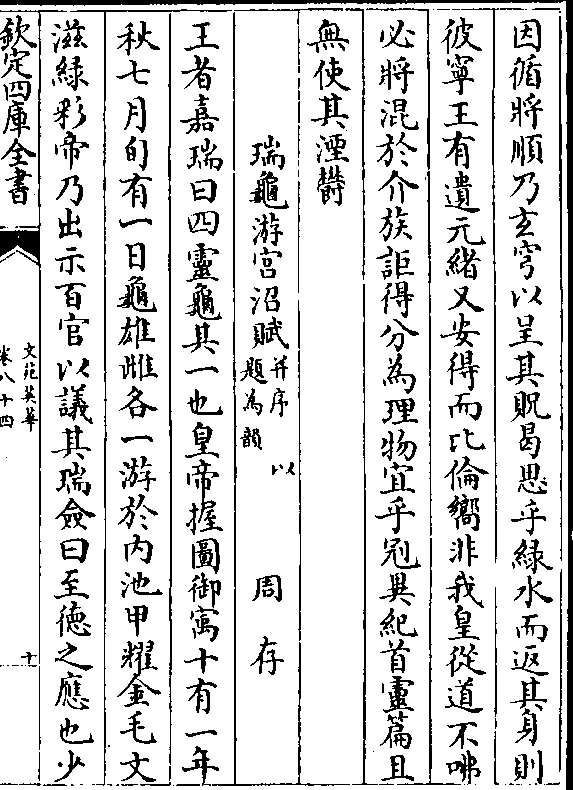 因循將順乃玄穹以呈其貺曷思乎緑水而返其身則
彼寧王有遺元緒又安得而比倫嚮非我皇從道不咈
必將混於介族詎得分為理物宜乎冠異紀首靈篇且
無使其湮鬱
瑞龜游宫沼賦并序 以題為韻 周存
王者嘉瑞曰四靈龜其一也皇帝握圖御寓十有一年
秋七月旬有一日龜雄雌各一游於内池甲耀金毛文
滋緑彩帝乃出示百官以議其瑞僉曰至德之應也少
欽定四庫全書
文苑英華
卷八十四
十